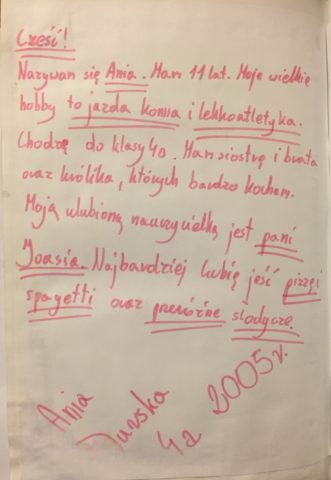 Cześć!
Nazywam się Ania. Mam 11 lat. Moje wielkie
hobby to jazda konna i lekkoatletyka.
Chodzę do klasy 4a. Mam siostrę i brata
oraz królika, których bardzo kocham.
Moją ulubioną nauczycielką jest pani
Joasia. Najbardziej lubię jeść pizzę i
spagetti oraz przeróżne słodycze.
Ania
Durska
4a 2005 r.